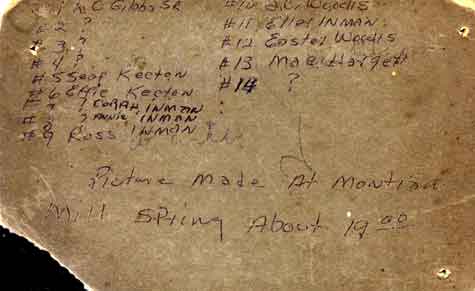 #1 M.C. Gibbs Sr
#2 ?
#3 ?
#4 ?
#5 Soap Keeton
#6 Effie Keeton
#7 ? CORAH, INMAN
#8 ? ANNIE, INMAN
#9 Ross INMAN
#10 J.C. Woodis
#11 Ellei INMAN
#12 Easter Woodis
#13 Mae Hargett
#14 ?
Picture Made At Montina
Mill Spring About 1900